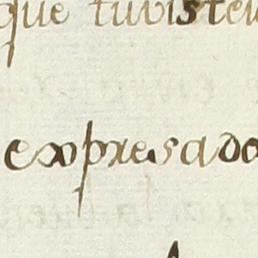 que tuviste
expresado